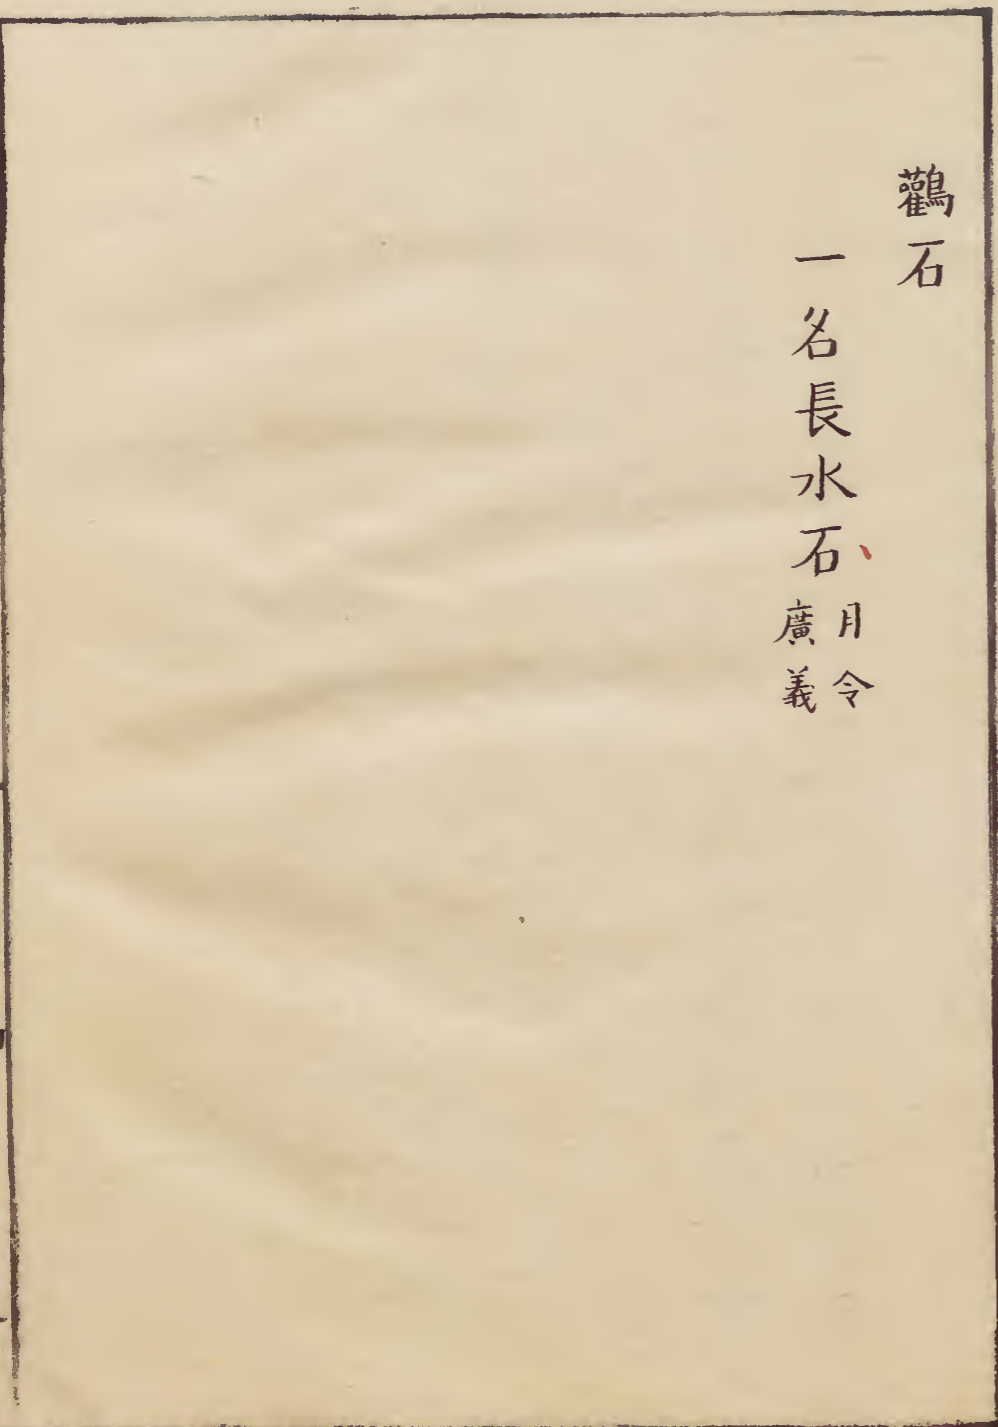 鸛石
一名長水石、月令
廣義